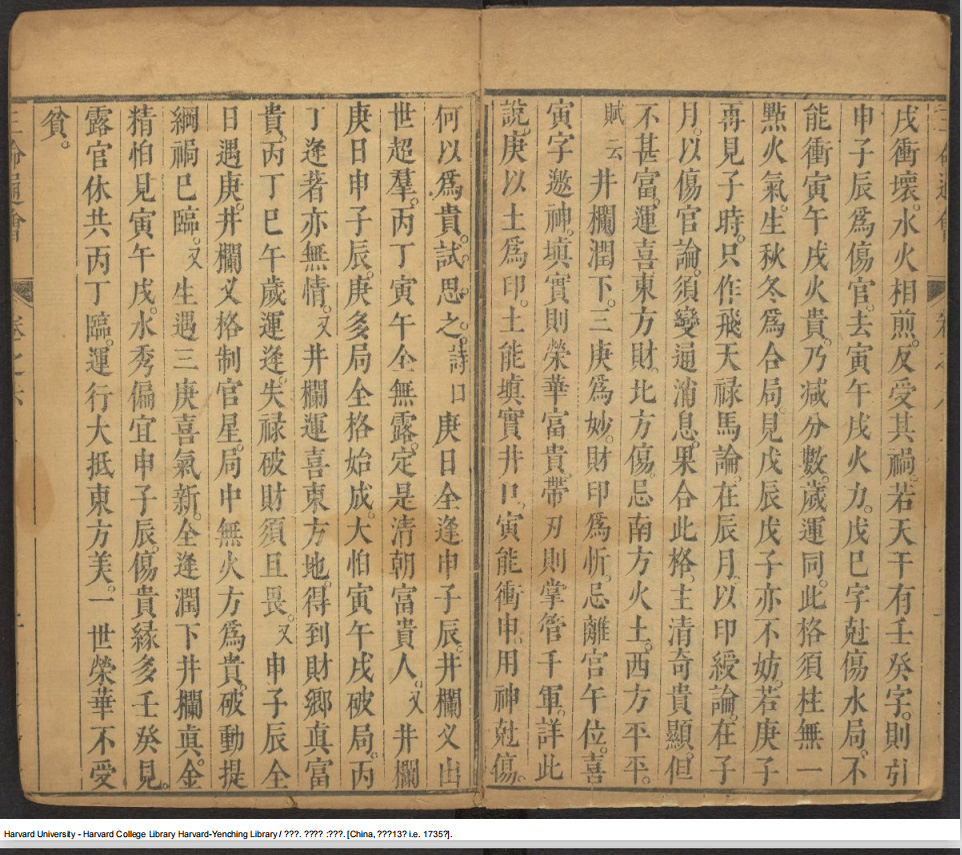 戌衝壞。水火相煎。反受其禍。若天干有壬癸字。則引
申子辰爲傷官。去寅午戌火力。戊巳字尅傷水局。不
能衝寅午戌火貴。乃减分數。歲運同。此格須柱無一
點火氣。生秋冬爲合局。見戊辰戊子亦不妨。若庚子
再見子時。只作飛天禄馬論。在辰月。以印綬論。在子
月。以傷官論。須變通消息。果合此格。主清奇貴顯。但
不甚富。運喜東方財。北方傷。忌南方火土。西方平平。
賦云 井欄潤下。三庚爲妙。財印爲忻。忌離宮午位。喜
寅字邀神。填實則榮華富貴。帶刃則掌管千軍。詳此
說。庚以土爲印。土能填實井口。寅能衝申。用神尅傷。
何以爲貴。試思之。詩曰 庚日全逢申子辰。井欄叉出
世超羣。丙丁寅午全無露。定是清朝富貴人。又 井欄
庚日申子辰。庚多局全格始成。大怕寅午戌破局。丙
丁逢著亦無情。又 井欄運喜東方地。得到財鄉真富
貴。丙丁巳午歲運逢。失禄破財須且畏。又 申子辰全
日遇庚。井欄叉格制官星。局中無火方爲貴。破動提
綱禍巳臨。又 生遇三庚喜氣新。全逢潤下井欄真。金
精怕見寅午戌。水秀偏宜申子辰。傷貴緣多壬癸見。
露官休共丙丁臨。運行大抵東方美。一世榮華不受
貧。
三命通會
卷之六
Harvard University - Harvard College Library Harvard-Yenching Library / ???. ???? :???. [China, ???13? i.e. 1735?].